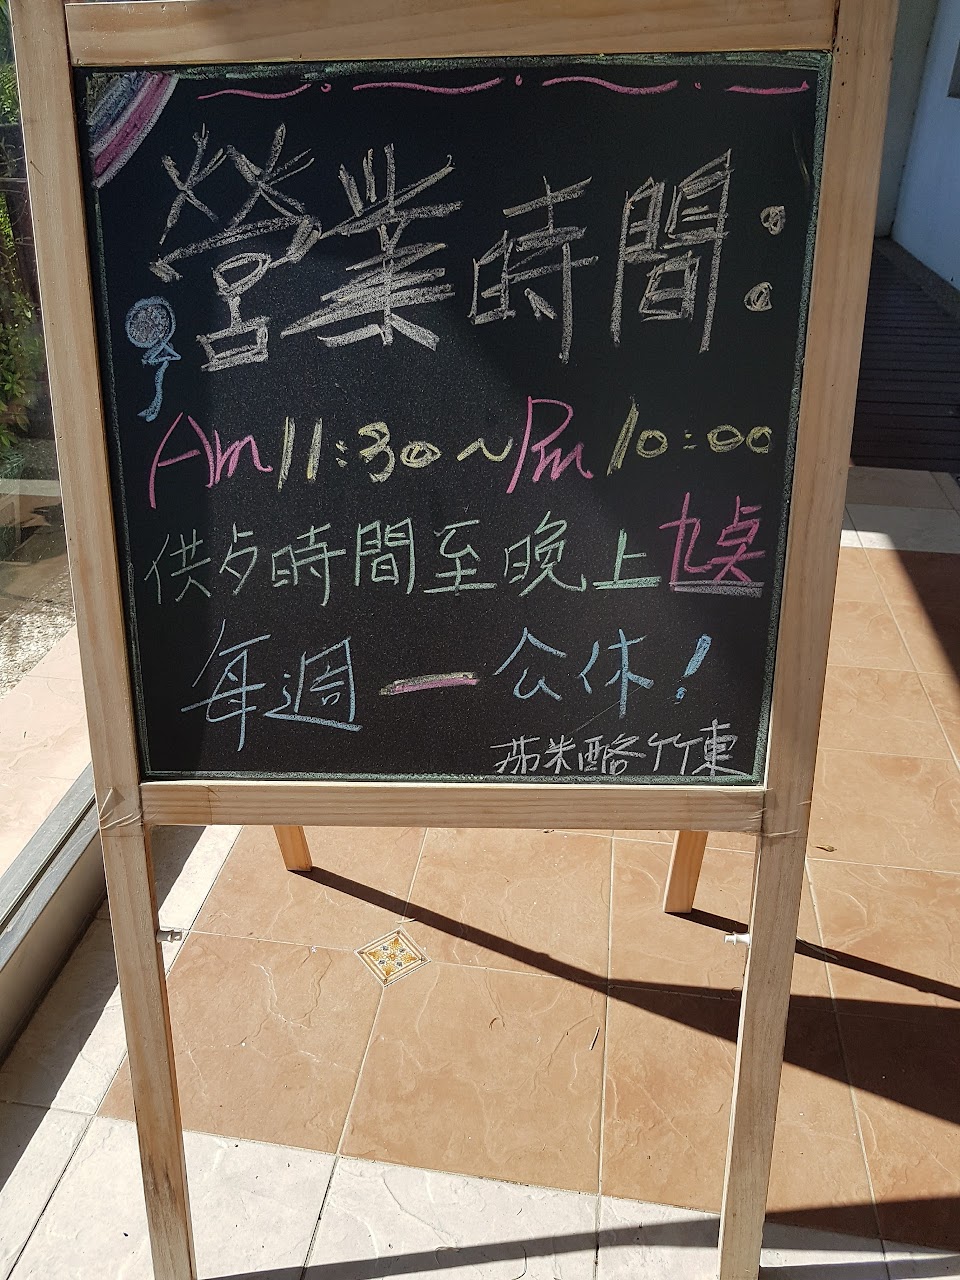 營業時間:
Am 11:30~Pm 10:00
供歺時間至晚上九点
每週一公休!
茄米酪竹東